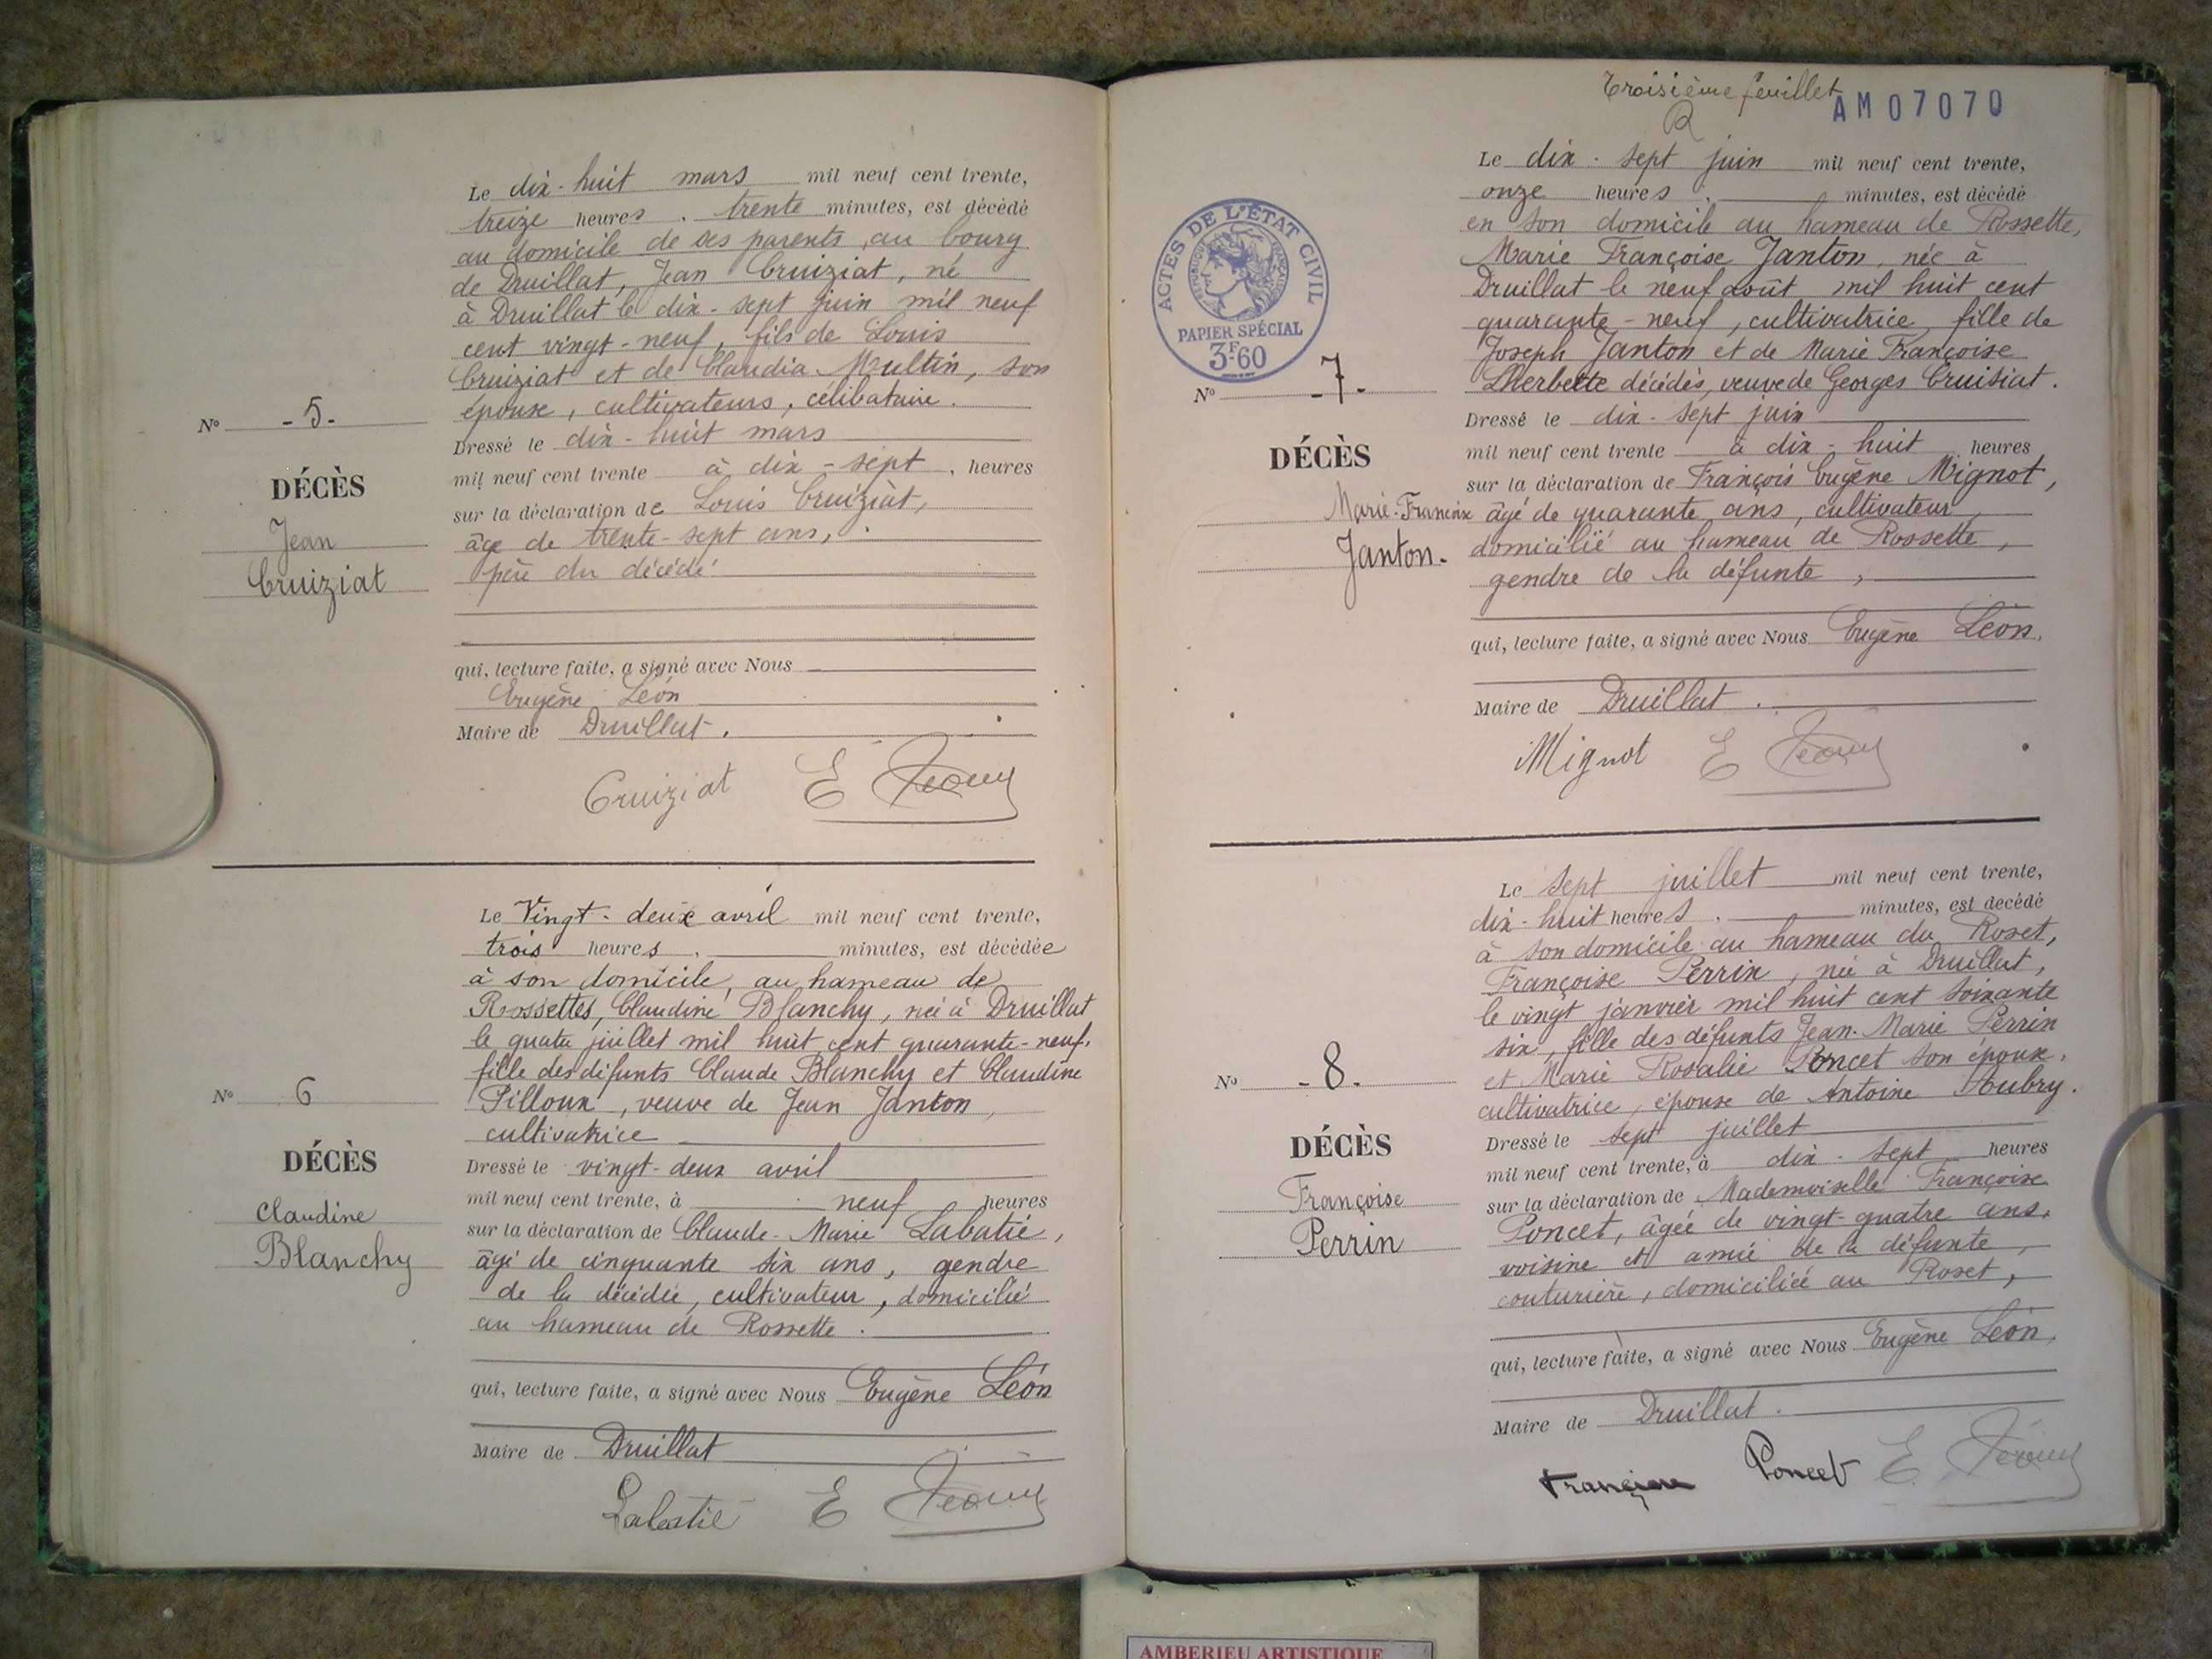 Le dix-huit mars mil neuf cent trente,
treize heures . trente minutes, est décédé
au domicile de ses parents, au bourg
de Druillat, Jean Cruiziat, né
à Druillat le dix-sept juin mil neuf
cent vingt-neuf, fils de Louis
Cruiziat et de Claudia Multin, son
épouse, cultivateurs, célibataire.
Dressé le dix-huit mars
mil neuf cent trente à dix-sept, heures
sur la déclaration de Louis Cruiziat,
âge de trente-sept ans,
père du décédé
qui, lecture faite, a signé avec Nous
Eugène Léon
Maire de Druillat.
Cruiziat E Léon
No -5-
DÉCÈS
Jean
Cruiziat
Le Vingt-deux avril mil neuf cent trente,
trois heures . minutes, est décédée
à son domicile, au hameau de
Rossettes, Claudine Blanchy, née à Druillat
le quatre juillet mil huit cent quarante-neuf,
fille des défunts Claude Blanchy et Claudine
Pilloux, veuve de Jean Janton,
cultivatrice
Dressé le vingt-deux avril
mil neuf cent trente, à neuf heures
sur la déclaration de Claude-Marie Labatié,
âgé de cinquante six ans, gendre
de la décédée, cultivateur, domicilié
au hameau de Rossette.
qui, lecture faite, a signé avec Nous Eugène Léon
Maire de Druillat
Labatié E Léon
No 6
DÉCÈS
Claudine
Blanchy
Troisième feuillet
AM07070
ACTES DE L'ÉTAT CIVIL
RÉPUBLIQUE FRANÇAISE
PAPIER SPÉCIAL
3F60
Le dix-sept juin mil neuf cent trente,
onze heures . minutes, est décédé
en son domicile au hameau de Rossette,
Marie Françoise Janton, née à
Druillat le neuf août mil huit cent
quarante-neuf, cultivatrice, fille de
Joseph Janton et de Marie Françoise
Lherbette décédés, veuve de Georges Cruisiat.
Dressé le dix-sept juin
mil neuf cent trente à dix-huit heures
sur la déclaration de François Eugène Mignot,
âgé de quarante ans, cultivateur
domicilié au hameau de Rossette,
gendre de la défunte,
qui, lecture faite, a signé avec Nous Eugène Léon,
Maire de Druillat.
Mignot E Léon
No -7-
DÉCÈS
Marie-Françoise
Janton-
Le sept juillet mil neuf cent trente,
dix-huit heures . minutes, est decédé
à son domicile au hameau du Roset,
Françoise Perrin, née à Druillat,
le vingt janvier mil huit cent soixante
six, fille des défunts Jean-Marie Perrin
et Marie Rosalie Poncet son épouse,
cultivatrice, épouse de Antoine Aubry.
Dressé le sept juillet
mil neuf cent trente, à dix-sept heures
sur la déclaration de Mademoiselle Françoise
Poncet, âgée de vingt-quatre ans,
voisine et amie de la défunte,
couturière, domiciliée au Roset,
qui, lecture faite, a signé avec Nous Eugène Léon,
Maire de Druillat.
Poncet E Léon
No -8-
DÉCÈS
Françoise
Perrin
AMBERIEU ARTISTIQUE